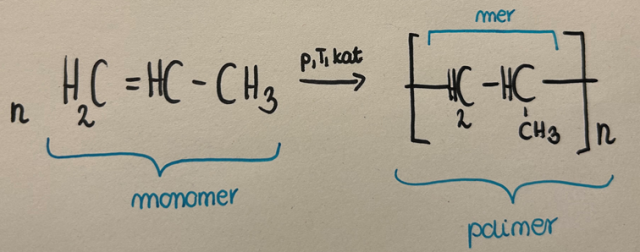 mer
n H₂C = HC - CH₃ p,T,kat → [ - H₂C - HC - ]n
CH₃
monomer
polimer